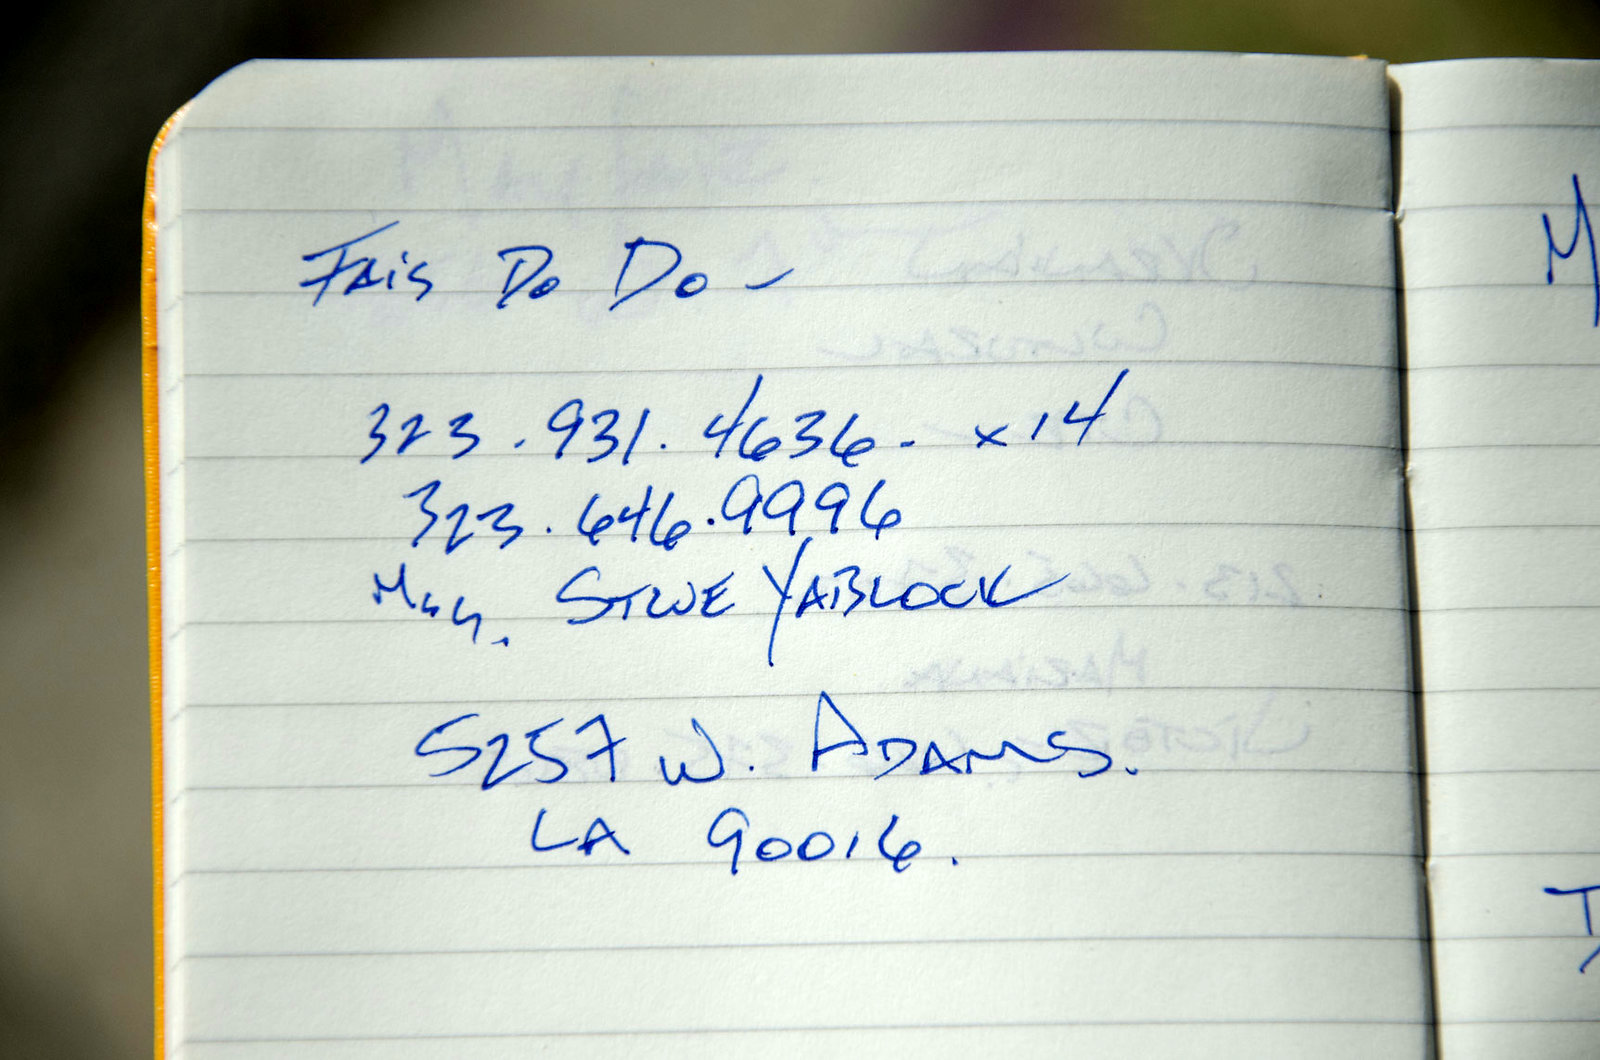 Fais Do Do -
323.931.4636- x14
323.646.9996
STEVE YABLOCK
5257 W. ADAMS.
LA 90016.
M